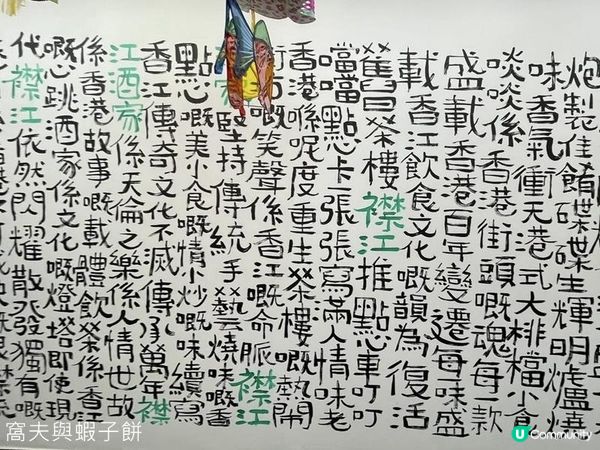 炮製佳餚碟碟生輝明爐燒
味香氣衝天港式大排檔小食
啖啖係香港街頭嘅魂每一款
盛載香港百年變遷每一味盛
載香江飲食文化嘅韻為復活
舊日茶樓襟江推點車叮叮
噹噹點卡一張張寫滿人情味老
香港喺呢度重生茶樓嘅熱鬧
街坊嘅笑聲係香江嘅命脈襟江
家堅持傳統手藝燒味嘅香
點心嘅美小食嘅情小炒嘅味續寫
香江傳奇文化不滅傳承萬年襟
江酒家係天倫之樂係人情世故
係香港故事嘅載體飲茶係香江
嘅心跳酒家係文化嘅燈塔即使現
代襟江依然閃耀散發獨有嘅
窩夫與蝦子餅
U Community